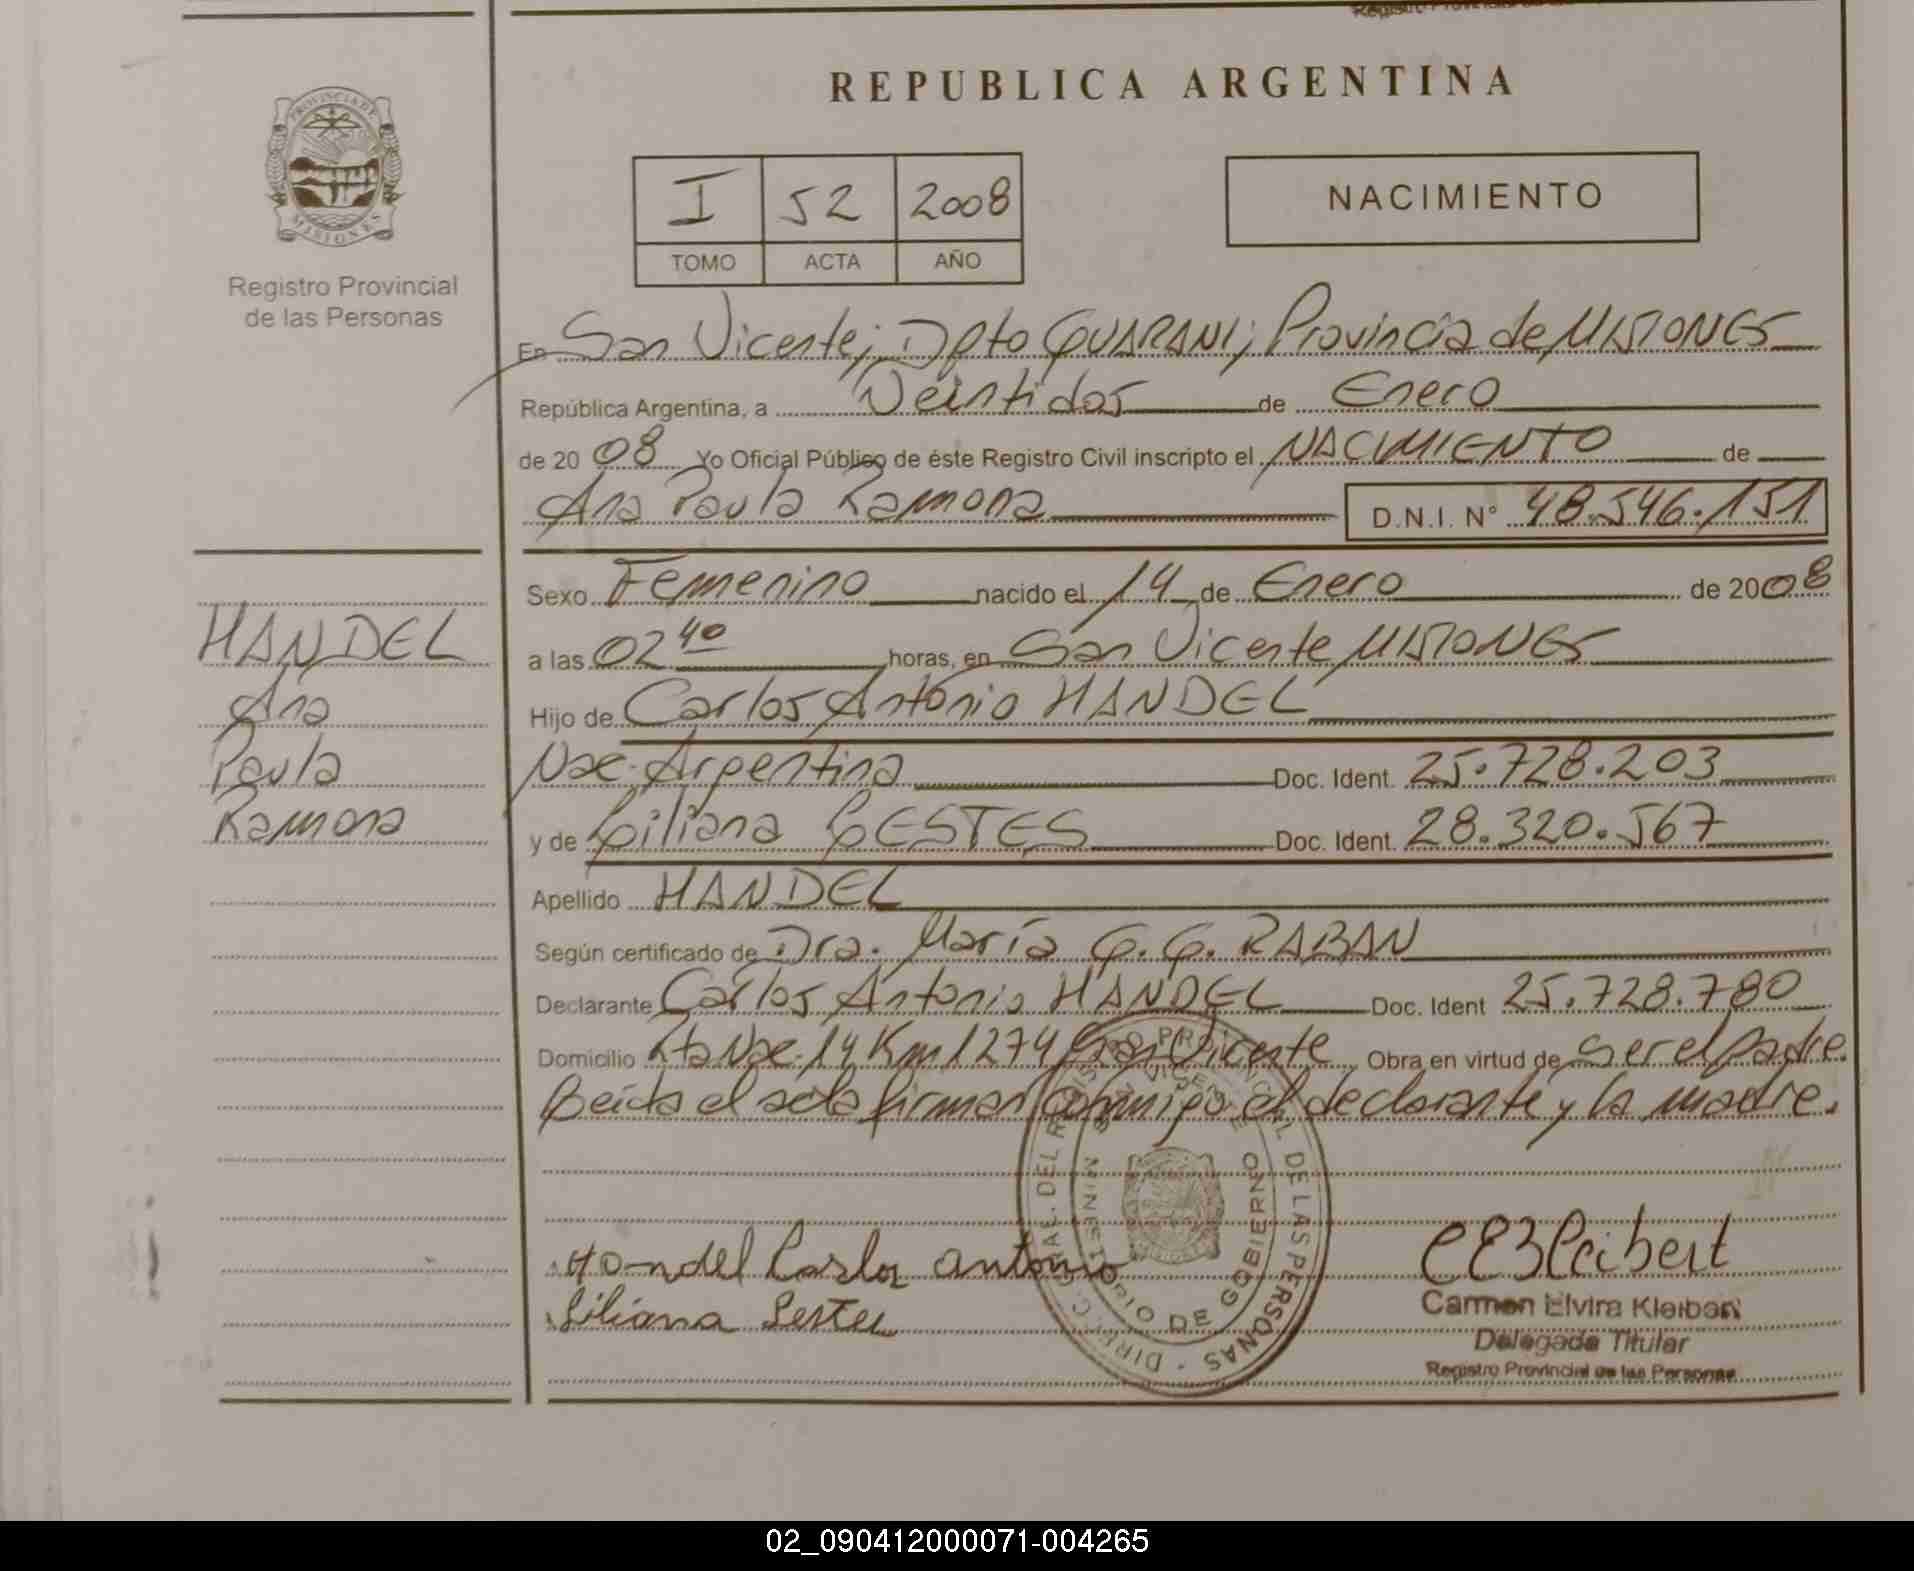 REPUBLICA ARGENTINA
PROVINCIA DE
MISIONES
Registro Provincial
de las Personas
I 52 2008
TOMO ACTA AÑO
NACIMIENTO
En San Vicente; Dpto GUARANI; Provincia de MISIONES
República Argentina, a Veintidos de Enero
de 2008 Yo Oficial Público de éste Registro Civil inscripto el NACIMIENTO de
Ana Paula Ramona D.N.I. N° 48.546.151
Sexo Femenino nacido el 14 de Enero de 2008
a las 02 40 horas, en San Vicente MISIONES
Hijo de Carlos Antonio HANDEL
Nac. Argentina Doc. Ident. 25.728.203
y de Liliana LESTES Doc. Ident. 28.320.567
Apellido HANDEL
Según certificado de Dra. María G. G. RABAN
Declarante Carlos Antonio HANDEL Doc. Ident 25.728.780
Domicilio Rta Nac. 14 Km 1274 San Vicente Obra en virtud de ser el Padre.
Leída el acta firman conmigo el declarante y la madre.
HANDEL
Ana
Paula
Ramona
Handel Carlos antonio
Liliana Lestes
DIRECC. GRAL. DEL REGISTRO PROVINCIAL DE LAS PERSONAS
SAN VICENTE
MINISTERIO DE GOBIERNO
Carmen Elvira Kleibert
Delegada Titular
Registro Provincial de las Personas
02_090412000071-004265